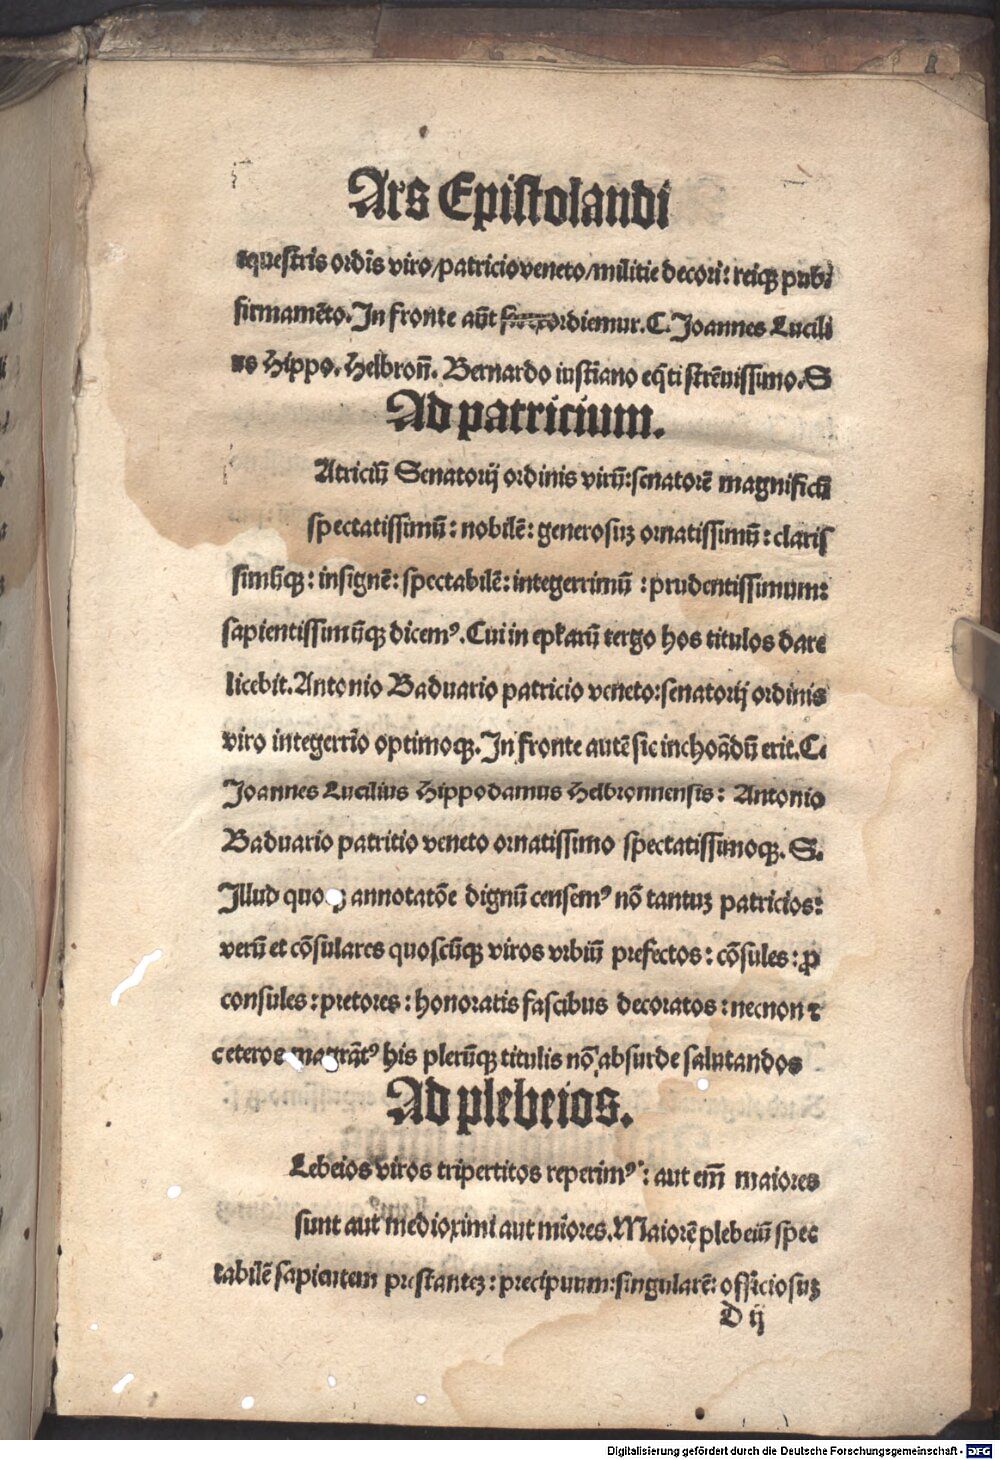 Ars Epistolandi
equestris ordīs viro/patricio veneto/militie decori: reiqꝫ pub.
firmamēto. In fronte aūt ordiemur. C. Joannes Lucili
us Hippo. Helbron̄. Bernardo iustiano eq̄ti strēuissimo. S
Ad patricium.
Atriciū Senatorij ordinis virū: senatorē magnificū
spectatissimū: nobilē: generosuꝫ ornatissimū: claris
simūqꝫ: insignē: spectabilē: integerrimū: prudentissimum:
sapientissimūqꝫ dicemꝰ. Cui in ep̄larū tergo hos titulos dare
licebit. Antonio Baduario patricio veneto: senatorij ordinis
viro integerrīo optimoqꝫ. In fronte autē sic inchoādū erit. C.
Joannes Lucilius Hippodamus Helbronnensis: Antonio
Baduario patritio veneto ornatissimo spectatissimoqꝫ. S.
Illud quoqꝫ annotatōe dignū censemꝰ nō tantuꝫ patricios:
verū et cōsulares quoscūqꝫ viros vrbiū prefectos: cōsules: ꝓ
consules: pretores: honoratis fascibus decoratos: necnon ⁊
ceteros magrātꝰ his plerūqꝫ titulis nō absurde salutandos
Ad plebeios.
Lebeios viros tripertitos reperimꝰ: aut em̄ maiores
sunt aut medioximi aut miores. Maiorē plebeiū spec
tabilē sapientem prestanteꝫ: precipuum: singularē: officiosuꝫ
D ij
Digitalisierung gefördert durch die Deutsche Forschungsgemeinschaft - DFG